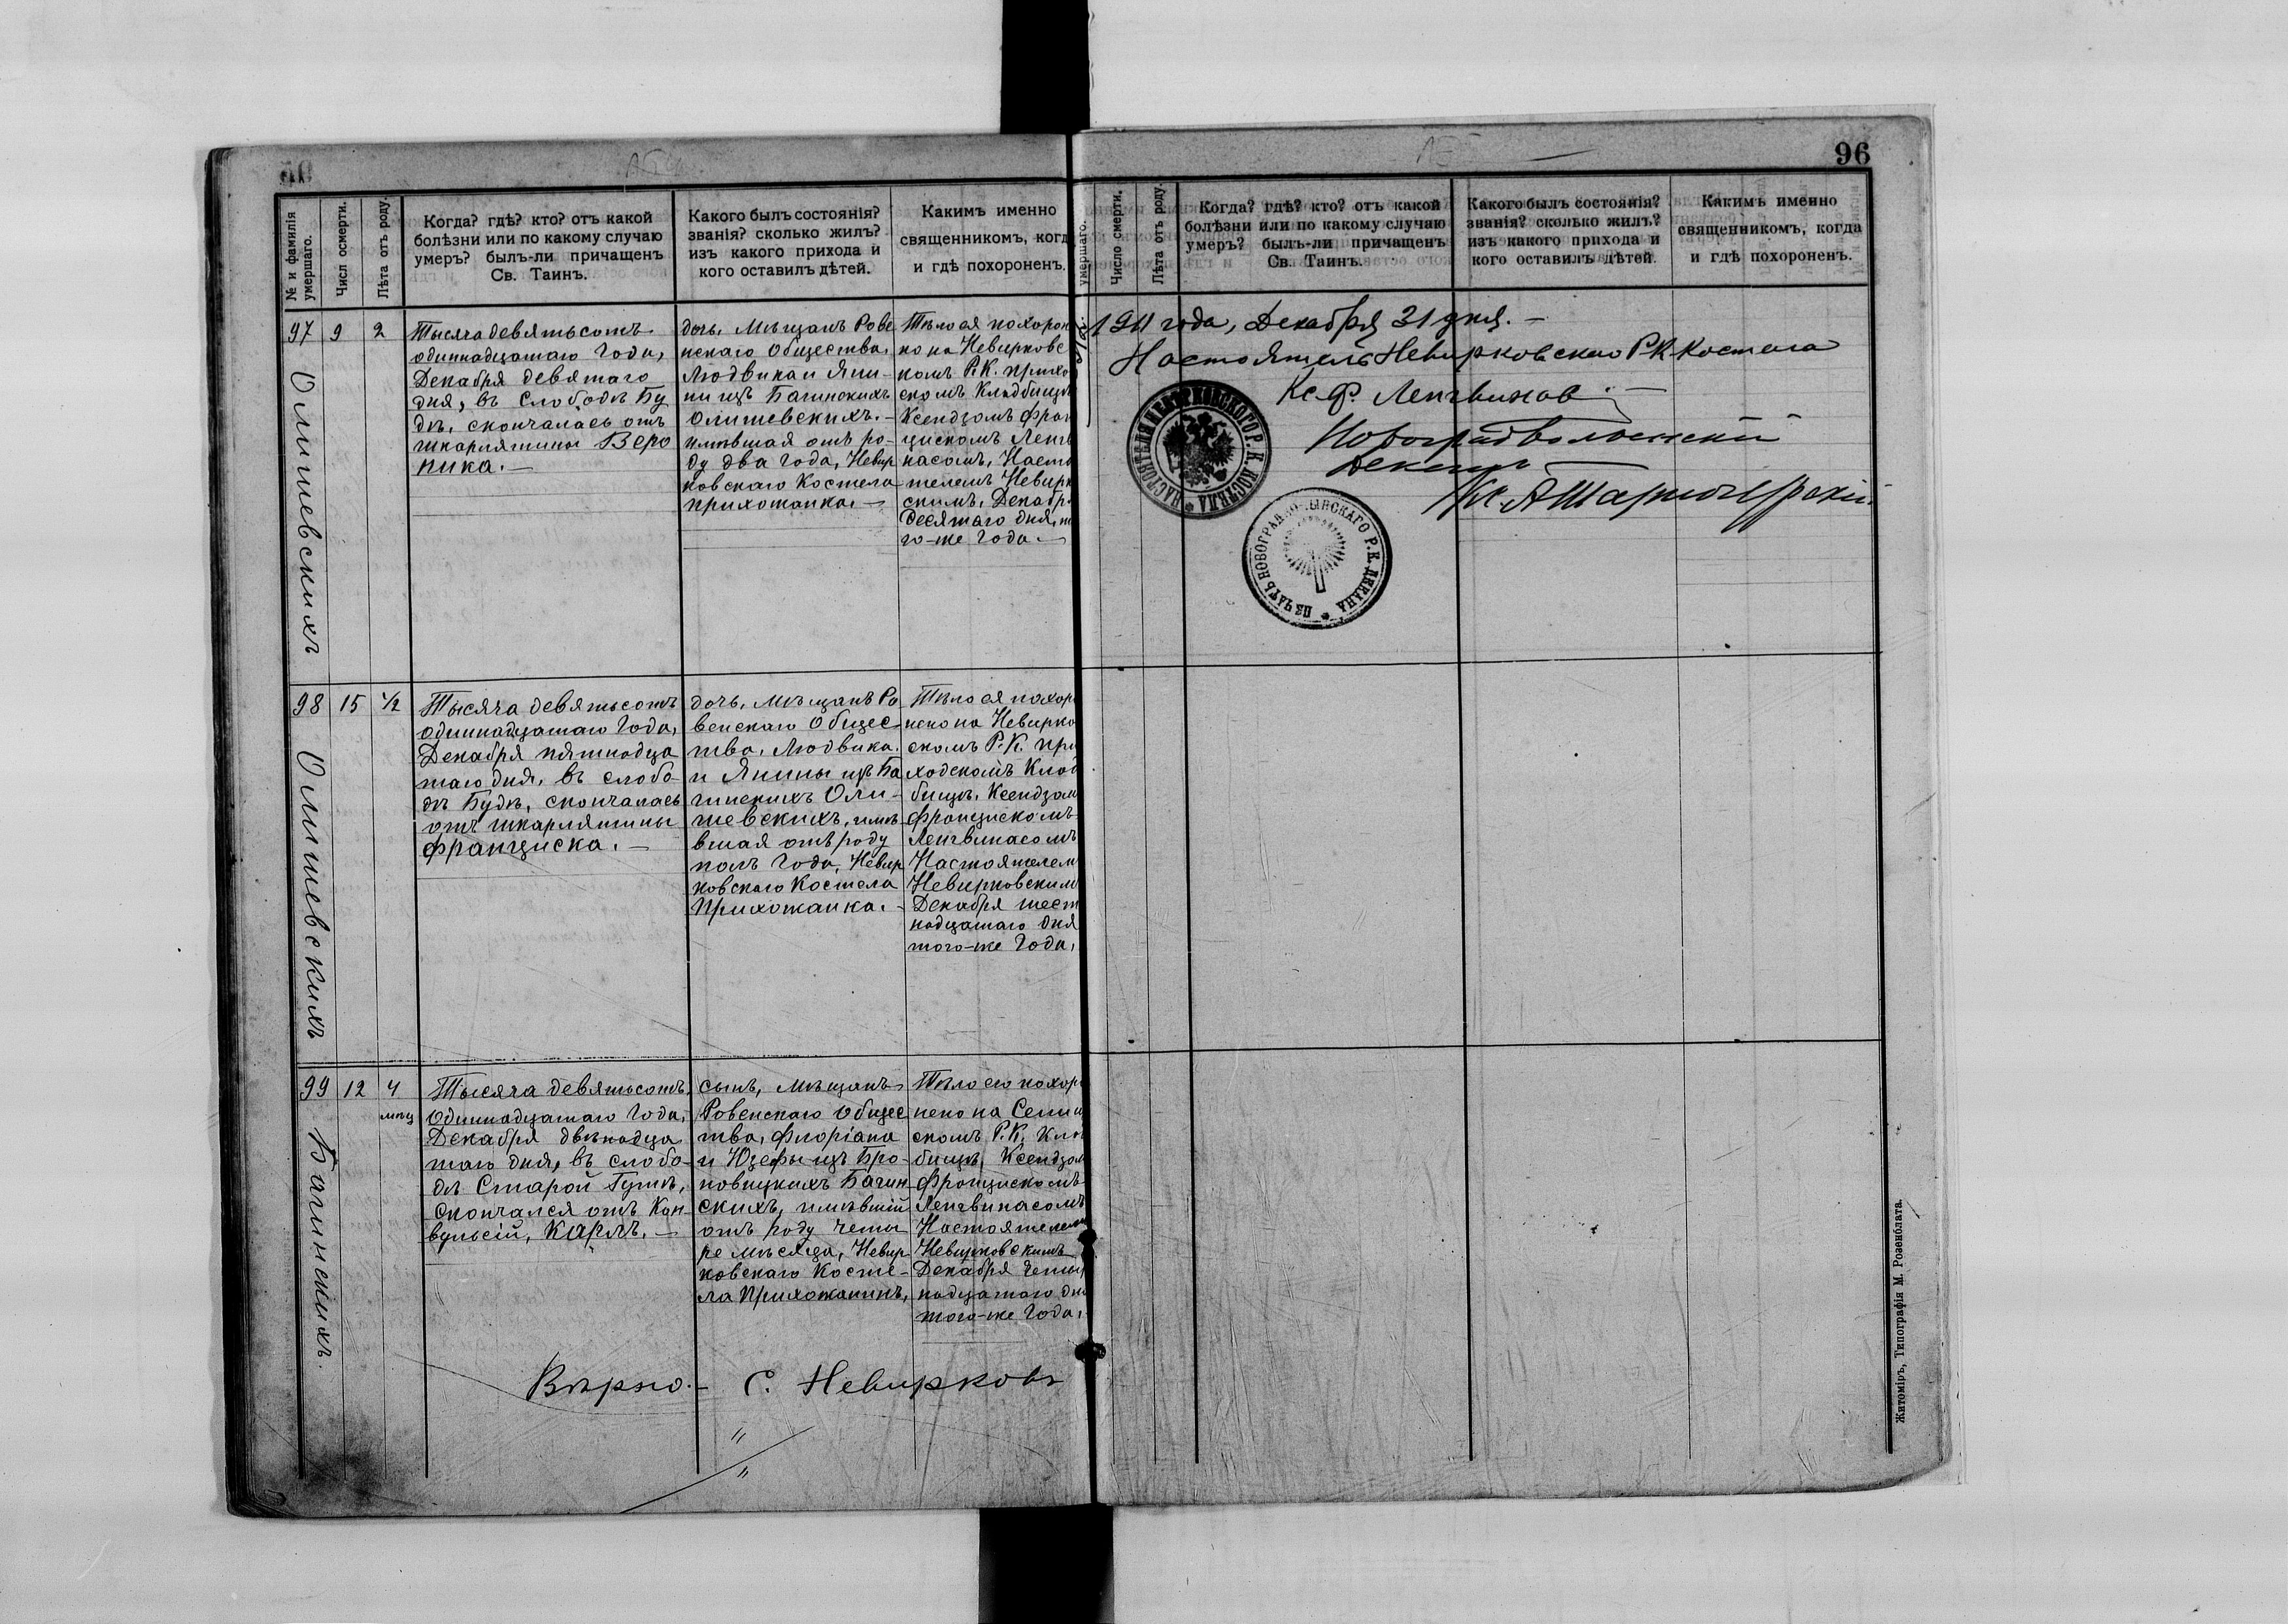 96
№ и фамилія умершаго.
Числ осмерти.
Лѣта отъ роду.
Когда? гдѣ? кто? отъ какой
болѣзни или по какому случаю
умеръ? былъ-ли причащенъ
Св. Таинъ.
Какого былъ состоянія?
званія? сколько жилъ?
изъ какого прихода и
кого оставилъ дѣтей.
Какимъ именно
священникомъ, когд
и гдѣ похороненъ.
97
9
2
Олишевскихъ
Тысяча девятьсотъ
одиннадцатаго года,
Декабря девятаго
дня, въ слободѣ Бу
дѣ, скончалась отъ
шкарлятины Веро
ника. —
дочь, Мѣщанъ Рове
нскаго Общества,
Людвика и Яни-
ны изъ Багинскихъ
Олишевскихъ. —
имѣвшая отъ ро-
ду два года, Невир
ковскаго Костела
прихожанка. —
Тѣло ея похорон
но на Невирковс
комъ Р.К. прихо
скомъ Кладбищѣ
Ксендзомъ Фран
цискомъ Ленгв
насомъ, Насто
телемъ Невирк
скимъ, Декабр
десятаго дня, т
го-же года. —
98
15
1/2
Олишевскихъ
Тысяча девятьсотъ
одиннадцатаго года,
Декабря пятнадца
таго дня, въ слобо-
дѣ Будѣ, скончалась
отъ шкарлятины
Франциска. —
дочь, мѣщанъ Ро
венскаго Общес
тва, Людвика
и Янины изъ Ба
гинскихъ Оли-
шевскихъ, имѣ-
вшая отъ роду
полъ года, Невир
ковскаго Костела
Прихожанка. -
Тѣло ея похор
нено на Невирко
скомъ Р.К. при
ходскомъ Клад
бищѣ, Ксендзом
Францискомъ
Ленгвинасомъ
Настоятелем
Невирковским
Декабря шест
надцатаго дня
того-же года,
99
12
4
мѣц
Багинскихъ.
Тысяча девятьсотъ
Одиннадцатаго года,
Декабря двѣнадца
таго дня, въ слобо-
дѣ Старой Гутѣ,
скончался отъ Кон
вульсій, Карлъ. —
сынъ, Мѣщанъ
Ровенскаго Общес
тва, Флоріана
и Юзефы изъ Бро-
новицкихъ Багин
скихъ, имѣвшій
отъ роду четы
ре мѣсяца, Невир
ковскаго Косте-
ла Прихожанинъ,
Тѣло его похор
нено на
скомъ Р.К. Кла
бищѣ, Ксендзом
Францискомъ
Ленгвинасомъ
Настоятелем
Невирковскимъ
Декабря четыр
надцатаго дн
того-же года,
Вѣрно. - С. Невирковъ
"
"
умершаго.
Число смерти.
Лѣта отъ роду.
Когда? гдѣ? кто? отъ какой
болѣзни или по какому случаю
умеръ? былъ-ли причащенъ
Св. Таинъ.
Какого былъ состоянія?
званія? сколько жилъ?
изъ какого прихода и
кого оставилъ дѣтей.
Какимъ именно
священникомъ, когда
и гдѣ похороненъ.
1911 года, Декабря 31 дня. —
Настоятель Невирковскаго Р.К. Костела
Кс. Ф. Ленгвинас
Новоградволынскій
Декан
Кс. А
НАСТОЯТЕЛЯ НЕВИРКОВСКОГО Р. К. КОСТЕЛА
ПЕЧАТЬ НОВОГРАДВОЛЫНСКАГО Р. К. ДЕКАНА
Житоміръ, Типографія М. Розенблата.